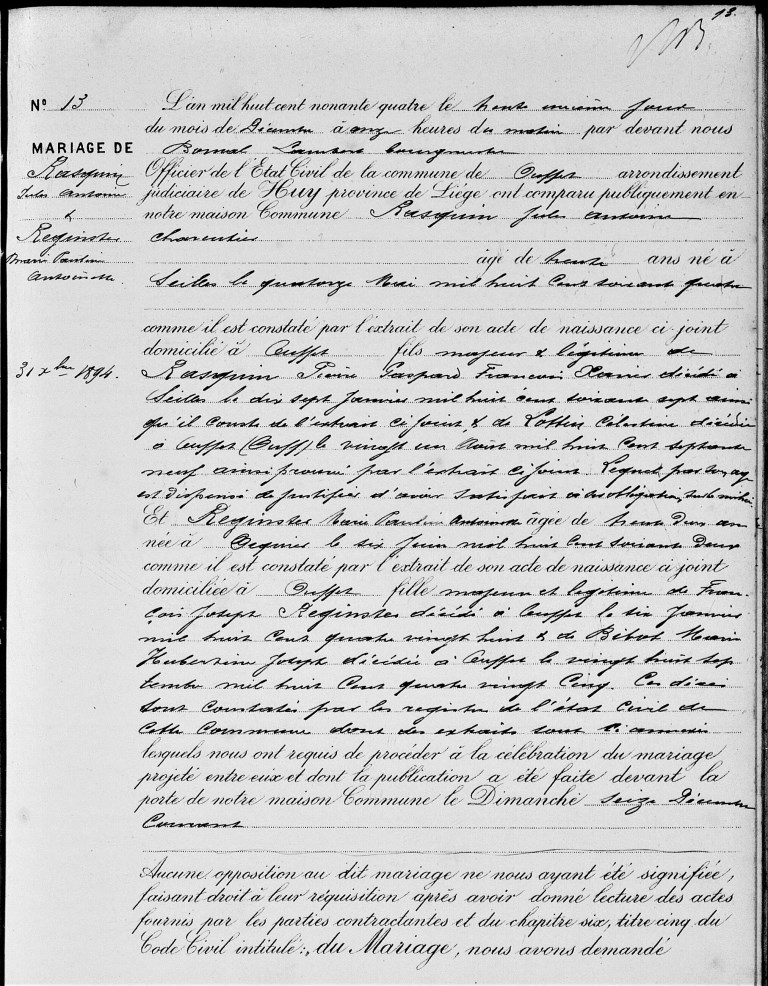 13.
N° 13
MARIAGE DE
Rasquin
Jules Antoine
&
Reginster
Marie Pauline
Antoinette
31 xbre 1894.
L'an mil huit cent nonante quatre le trente unième jour
du mois de Décembre à onze heures du matin par devant nous
Bomal Lambert bourgmestre
Officier de l'Etat Civil de la commune de Ouffet arrondissement
judiciaire de Huy province de Liége ont comparu publiquement en
notre maison Commune Rasquin Jules Antoine
charentier
âgé de trente ans né à
Seilles le quatorze Mai mil huit Cent soixante quatre
comme il est constaté par l'extrait de son acte de naissance ci-joint
domicilié à Ouffet fils majeur & légitime de
Rasquin Pierre Gaspard François Xavier décédé à
Seilles le dix sept Janvier mil huit cent soixante sept ainsi
qu'il conste de l'extrait ci joint & de Lottin Célestine décédée
à Ouffet (Ouff) le vingt un Août mil huit Cent septante
neuf ainsi prouvé par l'extrait ci joint Lequel par son age
est dispensé de justifier d'avoir satisfait à ses obligations sur la milice
Et Reginster Marie Pauline Antoinette âgée de trente deux ans
née à Ocquier le six Juin mil huit Cent soixante Deux
comme il est constaté par l'extrait de son acte de naissance ci joint
domiciliée à Ouffet fille majeure et légitime de Fran-
çois Joseph Reginster décédé à Ouffet le six Janvier
mil huit Cent quatre vingt huit & de Bibot Marie
Hubertine Joseph décédée à Ouffet le vingt huit Sep
tembre mil huit Cent quatre vingt Cinq. Ces décès
sont constatés par les registres de l'état Civil de
cette Commune dont des extraits sont ci annexés
lesquels nous ont requis de procéder à la célébration du mariage
projeté entre eux et dont la publication a été faite devant la
porte de notre maison Commune le Dimanche seize Décembre
Courant
Aucune opposition au dit mariage ne nous ayant été signifiée,
faisant droit à leur réquisition après avoir donné lecture des actes
fournis par les parties contractantes et du chapitre six, titre cinq du
Code Civil intitulé: du Mariage, nous avons demandé